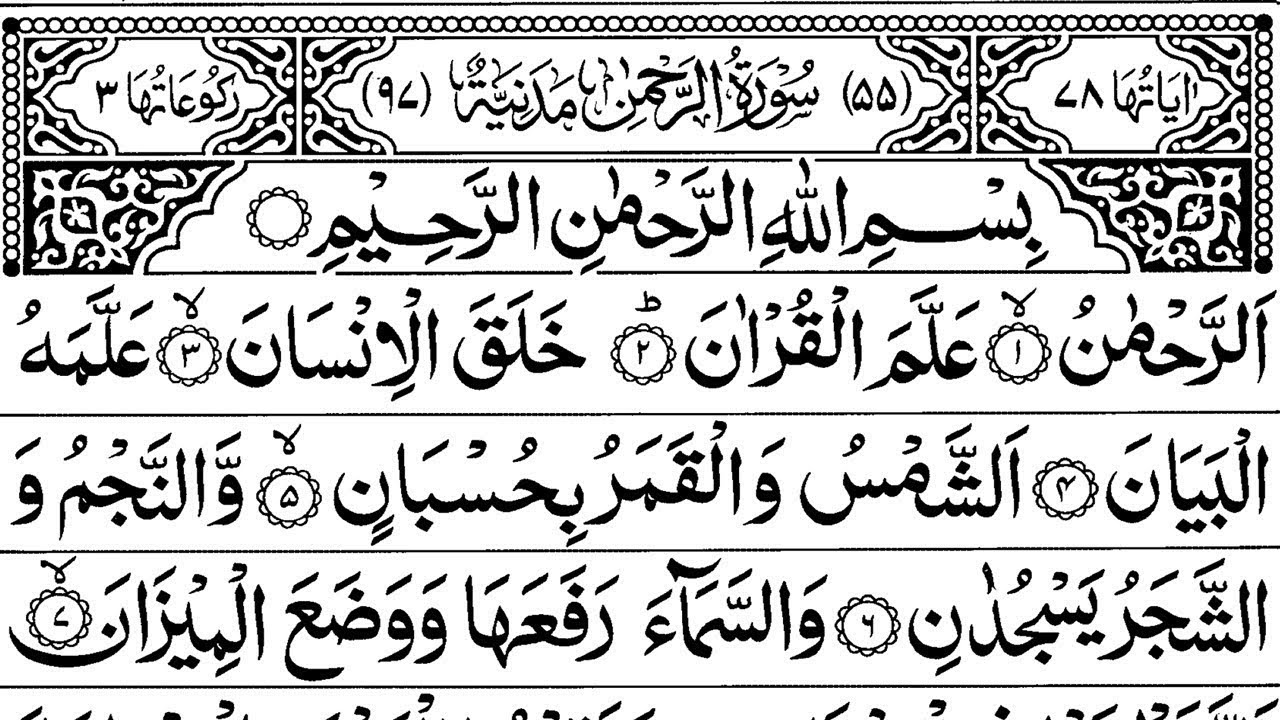 اٰيَاتُهَا ٧٨ (٥٥) سُوْرَةُ الرَّحْمٰنِ مَدَنِيَّةٌ (٩٧) رُكُوْعَاتُهَا ٣
بِسْمِ اللّٰهِ الرَّحْمٰنِ الرَّحِيْمِ
اَلرَّحْمٰنُ ۙ‏﴿۱﴾ عَلَّمَ الْقُرْاٰنَ ؕ‏﴿۲﴾ خَلَقَ الْاِنْسَانَ ۙ‏﴿۳﴾ عَلَّمَهُ
الْبَيَانَ ﴿۴﴾ اَلشَّمْسُ وَالْقَمَرُ بِحُسْبَانٍ ۙ‏﴿۵﴾ وَّالنَّجْمُ وَ
الشَّجَرُ يَسْجُدٰنِ ﴿۶﴾ وَالسَّمَآءَ رَفَعَهَا وَوَضَعَ الْمِيْزَانَ ۙ‏﴿۷﴾